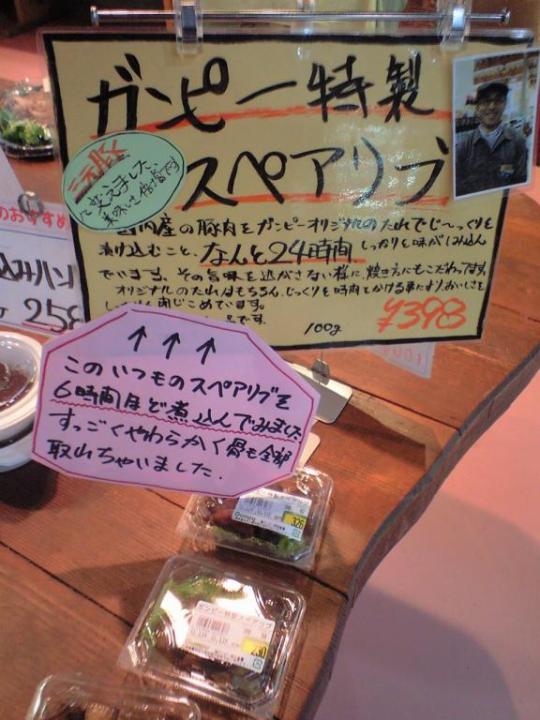 ガンピー特製
スペアリブ
三元豚
に変えました
美味しさ倍増
国内産の豚肉をガンピーオリジナルのたれでじ〜っくりと
漬け込むこと、なんと24時間 しっかりと味がしみ込ん
でいます。その旨味を逃がさない様に、焼き方にもこだわってます。
オリジナルのたれはもちろん、じっくりと時間をかける事でよりおいしさを
閉じこめています。
です。
100g
¥398
のおすすめ
込みハン
258
↑ ↑ ↑
このいつものスペアリブを
6時間ほど煮込んでみました
すっごくやわらかく骨も全部
取れちゃいました.
特製スペアリブ
326
ガンピー特製スペアリブ
230